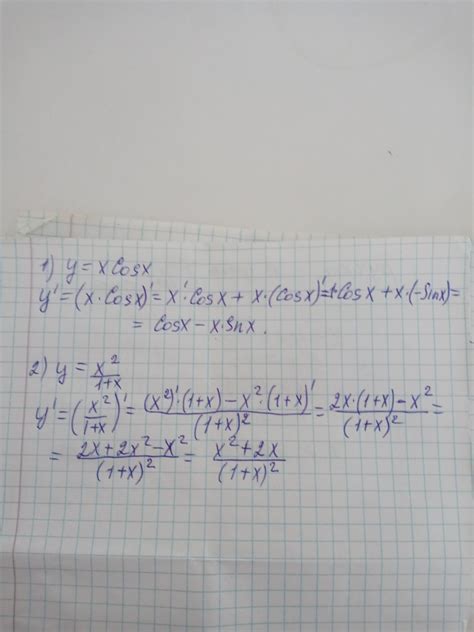 1) y = x cosx
y' = (x · cosx)' = x' · cosx + x · (cosx)' = 1·cosx + x · (-sinx) =
= cosx - x · snx.
2) y = x²/(1+x)
y' = (x²/(1+x))' = ((x²)' · (1+x) - x² · (1+x)')/(1+x)² = (2x · (1+x) - x²)/(1+x)² =
= (2x + 2x² - x²)/(1+x)² = (x² + 2x)/(1+x)²